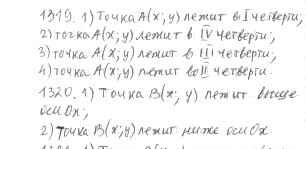 1319. 1) Точка A(x; y) лежит в I четверти,
2) точка A(x; y) лежит в IV четверти;
3) точка A(x; y) лежит в III четверти;
4) точка A(x; y) лежит во II четверти.
1320. 1) Точка B(x; y) лежит выше
оси Ox;
2) Точка B(x; y) лежит ниже оси Ox